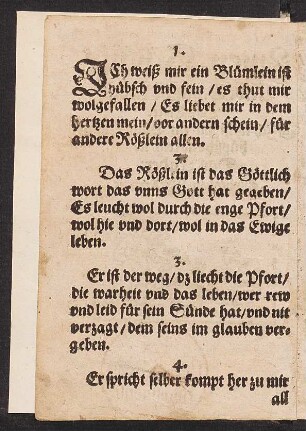 1.
ICh weiß mir ein Blümlein ist
hübsch vnd fein / es thut mir
wolgefallen / Es liebet mir in dem
hertzen mein / vor andern schein / für
andere Rößlein allen.
Das Rößlein ist das Göttlich
wort das vnns Gott hat gegeben /
Es leucht wol durch die enge Pfort /
wol hie vnd dort / wol in das Ewige
leben.
3.
Er ist der weg / dz liecht die Pfort /
die warheit vnd das leben / wer rew
vnd leid für sein Sünde hat / vnd nit
verzagt / dem seins im glauben ver-
geben.
4.
Er spricht selber kompt her zu mir
all